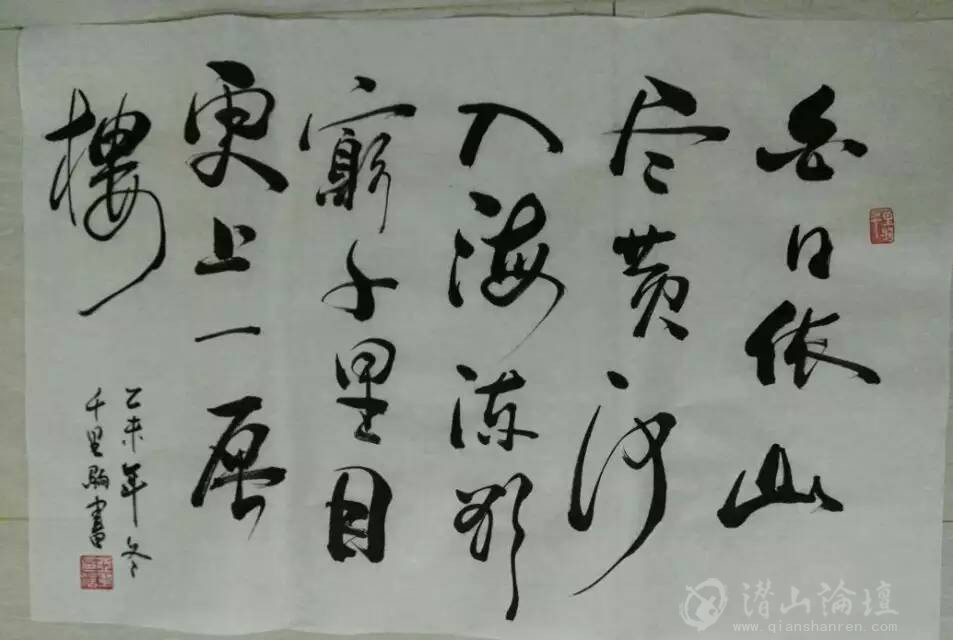 白日依山
尽黄河
入海流欲
窮千里目
更上一層
樓
乙未年冬
千里駒書
潜山論壇
www.qianshanren.com